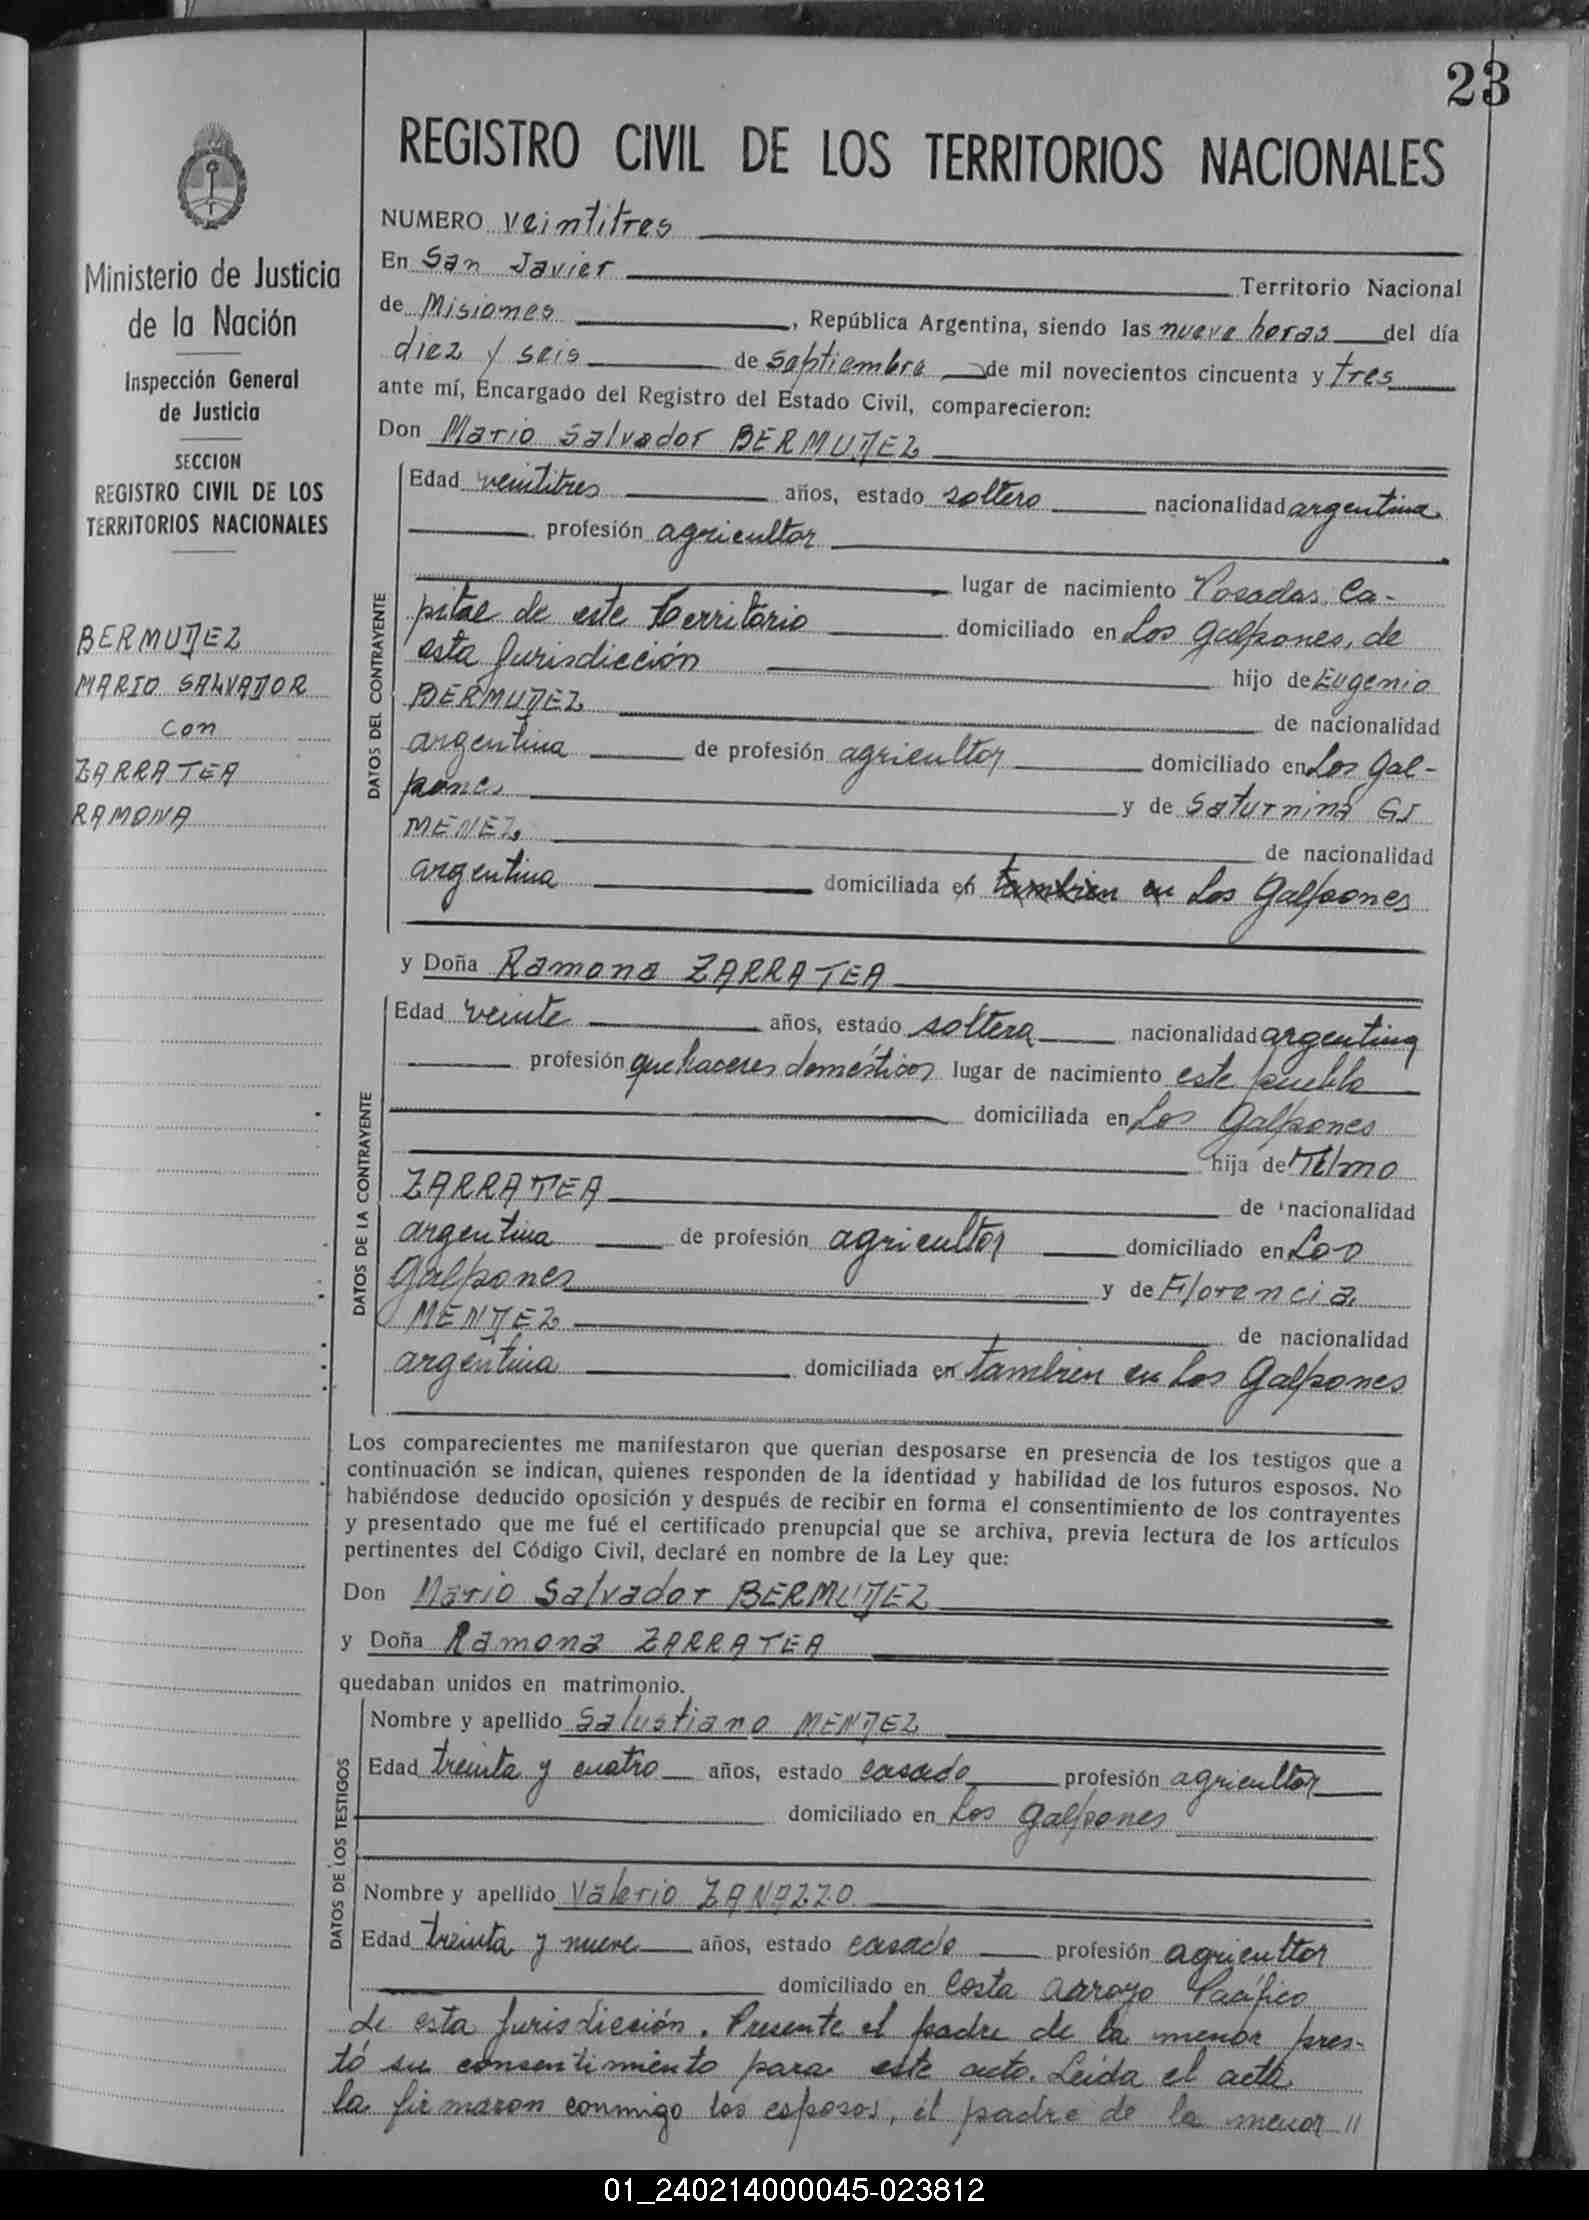 23
REGISTRO CIVIL DE LOS TERRITORIOS NACIONALES
Ministerio de Justicia
de la Nación
Inspección General
de Justicia
SECCION
REGISTRO CIVIL DE LOS
TERRITORIOS NACIONALES
BERMUDEZ
MARIO SALVADOR
con
ZARRATEA
RAMONA
NUMERO veintitres
En San Javier Territorio Nacional
de Misiones, República Argentina, siendo las nueve horas del día
diez y seis de septiembre de mil novecientos cincuenta y tres
ante mí, Encargado del Registro del Estado Civil, comparecieron:
Don Mario Salvador BERMUDEZ
DATOS DEL CONTRAYENTE
Edad veintitres años, estado soltero nacionalidad argentina
profesión agricultor
lugar de nacimiento Posadas, Ca-
pital de este territorio domiciliado en Los Galpones, de
esta Jurisdicción hijo de Eugenio
BERMUDEZ de nacionalidad
argentina de profesión agricultor domiciliado en Los Gal-
pones y de Saturnina GI
MENEZ de nacionalidad
argentina domiciliada en tambien en Los Galpones
y Doña Ramona ZARRATEA
DATOS DE LA CONTRAYENTE
Edad veinte años, estado soltera nacionalidad argentina
profesión quehaceres domésticos lugar de nacimiento este pueblo
domiciliada en Los Galpones
hija de Telmo
ZARRATEA de nacionalidad
argentina de profesión agricultor domiciliado en Los
Galpones y de Florencia
MENDEZ de nacionalidad
argentina domiciliada en tambien en Los Galpones
Los comparecientes me manifestaron que querían desposarse en presencia de los testigos que a
continuación se indican, quienes responden de la identidad y habilidad de los futuros esposos. No
habiéndose deducido oposición y después de recibir en forma el consentimiento de los contrayentes
y presentado que me fué el certificado prenupcial que se archiva, previa lectura de los artículos
pertinentes del Código Civil, declaré en nombre de la Ley que:
Don Mario Salvador BERMUDEZ
y Doña Ramona ZARRATEA
quedaban unidos en matrimonio.
DATOS DE LOS TESTIGOS
Nombre y apellido Salustiano MENDEZ
Edad treinta y cuatro años, estado casado profesión agricultor
domiciliado en Los Galpones
Nombre y apellido Valerio ZANAZZO
Edad treinta y nueve años, estado casado profesión agricultor
domiciliado en Costa Arroyo Pacífico
de esta Jurisdicción. Presente el padre de la menor pres-
tó su consentimiento para este acto. Leida el acta
la firmaron conmigo los esposos, el padre de la menor //
01_240214000045-023812